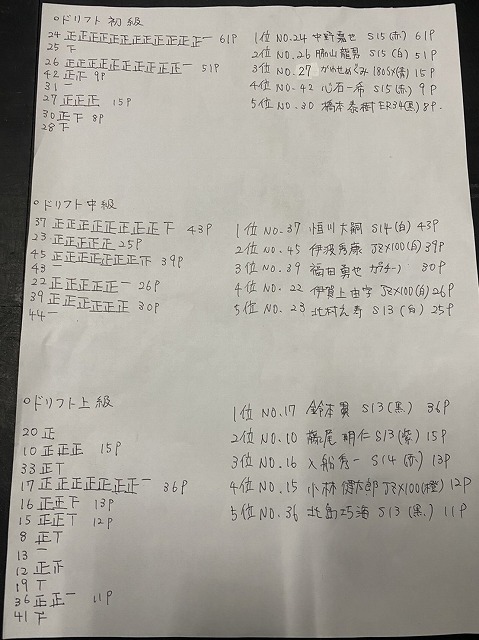 ○ドリフト初級
24 正正正正正正正正正正正正一 61P
25 下
26 正正正正正正正正正正一 51P
42 正正 9P
31 一
27 正正正 15P
30 正下 8P
28 下
1位 NO.24 中野嘉也 S15(赤) 61P
2位 NO.26 脇山龍男 S15(白) 51P
3位 NO.27 かわせめぐみ 180SX(青) 15P
4位 NO.42 心石一希 S15(赤) 9P
5位 NO.30 橋本泰樹 ER34(黒) 8P.
○ドリフト中級
37 正正正正正正正正下 43P
23 正正正正正 25P
45 正正正正正正正正 39P
43
22 正正正正正一 26P
39 正正正正正正 30P
44 一
1位 NO.37 恒川大嗣 S14(白) 43P
2位 NO.45 伊波秀康 JZX100(白) 39P
3位 NO.39 福田勇也 30P
4位 NO.22 伊賀上由宇 JZX100(白) 26P
5位 NO.23 北村太寿 S13(白) 25P
○ドリフト上級
20 正
10 正正正 15P
33 正T
17 正正正正正正正一 36P
16 正正下 13P
15 正正T 12P
8 正T
13 一
12 正正
19 T
36 正正一 11P
41 下
1位 NO.17 鈴本翼 S13(黒) 36P
2位 NO.10 藤尾明仁 S13(紫) 15P
3位 NO.16 入船秀一 S14(赤) 13P
4位 NO.15 小林健太郎 JZX100(橙) 12P
5位 NO.36 北島巧海 S13(黒) 11P